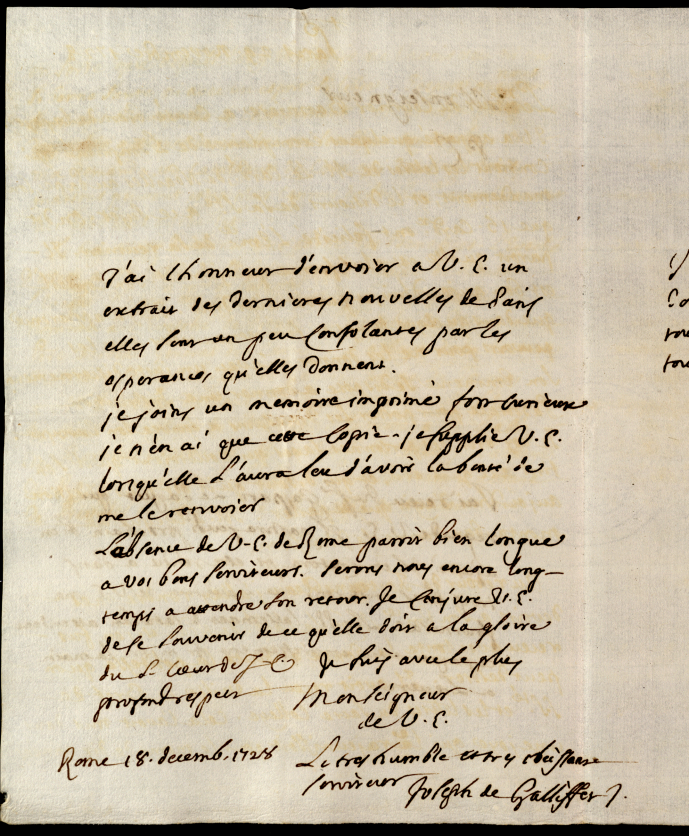 Monseigneur
J'ai l'honneur d'envoier a V. E. un
extrait des dernieres nouvelles de Paris
elles sont un peu consolantes par les
esperances qu'elles donnent.
je joins un memoire imprimé fort curieux
je n'en ai que cette copie. je supplie V. E.
lorsqu'elle l'aura leu d'avoir la bonté de
me le renvoier
L'absence de V. E. de Rome paroit bien longue
a vos bons serviteurs. serons nous encore long-
temps a attendre son retour. Je conjure V. E.
de se souvenir de ce qu'elle doit a la gloire
du S. Coeur de J. C. Je suis avec le plus
profond respect
Monseigneur
de V. E.
Rome 18. decemb. 1728
Le tres humble et tres obeissant
serviteur Joseph de Galliffet J.